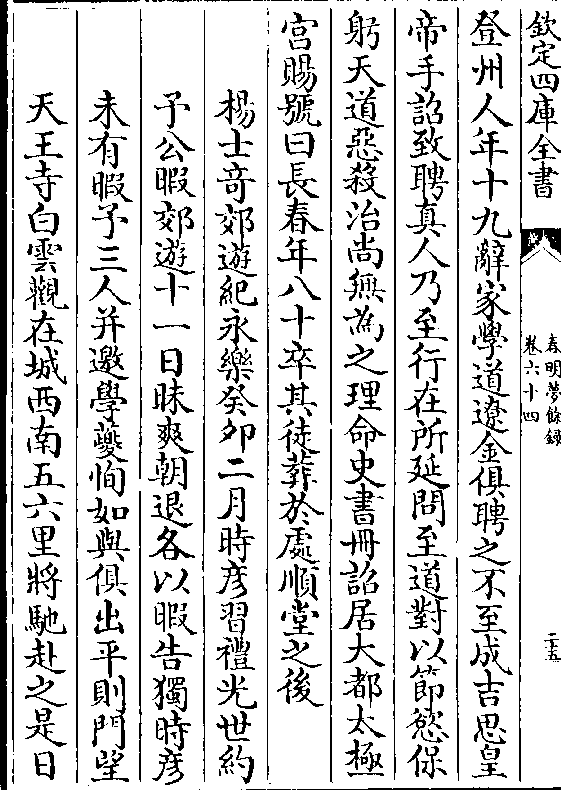 欽定四庫全書
春明夢餘錄
卷六十四
二十五
登州人年十九辭家學道遼金俱聘之不至成吉思皇
帝手詔致聘真人乃至行在所延問至道對以節慾保
躬天道惡殺治尚無為之理命史書冊詔居大都太極
宮賜號曰長春年八十卒其徒葬於處順堂之後
楊士竒郊遊紀永樂癸卯二月時彦習禮光世約
予公暇郊遊十一日昧爽朝退各以暇告獨時彦
未有暇予三人并邀學夔恂如與俱出平則門望
天王寺白雲觀在城西南五六里將馳赴之是日